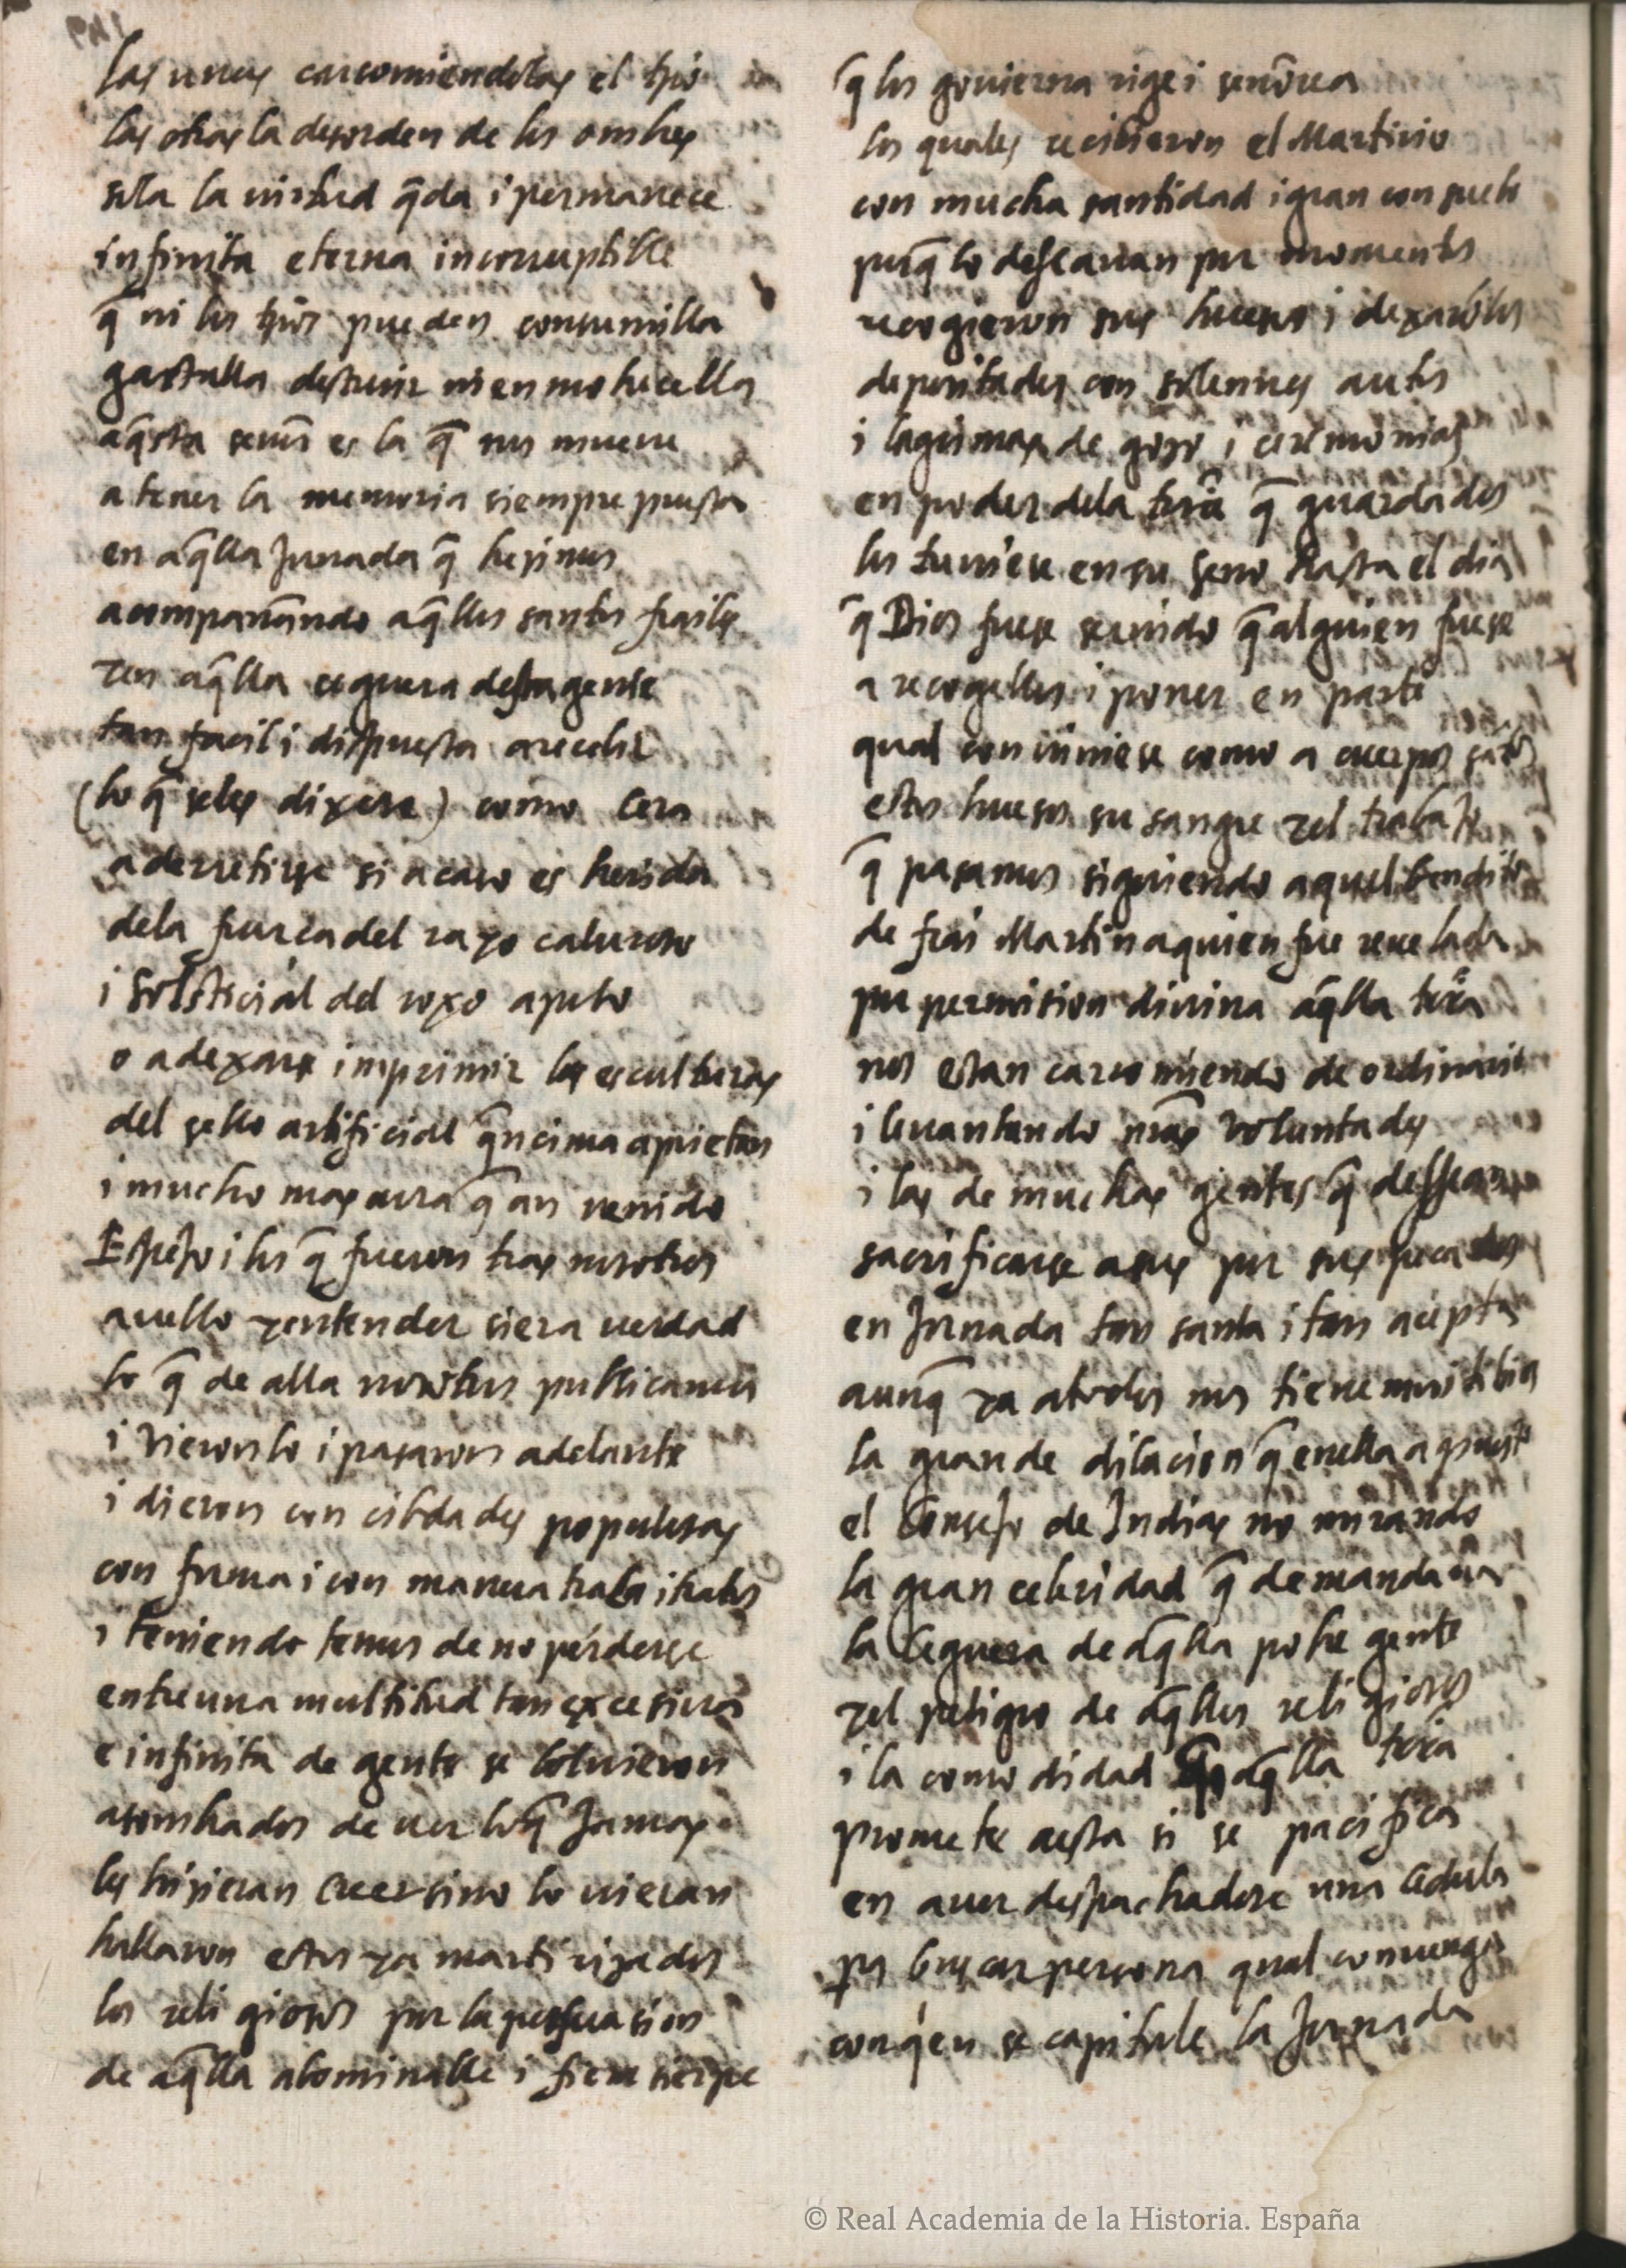 las unas carcomiendolas el tpo
las otras la desorden de los ombres
sola la uirtud q̃da i permanece
infinita eterna incorruptible
q̃ ni los tpos pueden consumilla
gastalla destruir ni enmohecella
aq̃sta señor es la q̃ nos mueue
a tener la memoria siempre puesta
en aq̃lla Jornada q̃ hezimos
acompañando aq̃llos santos frailes
i en aq̃lla ceguera desta gente
tan facil i dispuesta a recebir
(lo q̃ se les dixere) como cera
a derretirse si acaso es herida
dela fuerça del rayo caluroso
i solsticial del roxo apolo
o a dexarse imprimir las esculturas
del sello artificial q̃ncima aprietan
i mucho mas aora q̃ an uenido
Espejo i los q̃ fueron tras nosotros
a uello y entender si era uerdad
lo q̃ de alla nosotros publicamos
i vieronlo i pasaron adelante
i dieron con cibdades populosas
con forma i con manera trato i tratos
i teniendo temor de no perderse
entre una multitud tan excesiua
e infinita de gente se boluieron
asombrados de uer lo q̃ Jamas
les hizieran creer sino lo uieran
hallaron estos ya martirizados
los religiosos por la persuasion
de aq̃lla abominable i fiera sierpe
q̃ los gouierna rige i señorea
los quales recibieron el Martirio
con mucha santidad i gran consuelo
porq̃ lo desseauan por momentos
recogieron sus huesos i dexarolos
depositados con solenes autos
i lagrimas de gozo i ceremonias
en poder dela trã q̃ guardados
los tuuiese en su seno hasta el dia
q̃ Dios fuese seruido q̃ alguien fuese
a recogellos i poner en parte
qual conuiniese como a cuerpos sãtos
estos huesos su sangre y el trabajo
q̃ pasamos siguiendo aquel bendito
de frai Martin a quien fue reuelada
por permision diuina aq̃lla trrã
nos estan carcomiendo de ordinario
i leuantando nrãs voluntades
i las de muchas gentes q̃ dessean
sacrificarse a sus por sus pecados
en Jornada tan santa i tan acepta
aunq̃ ya a todos nos tiene mui tibios
la grande dilacion q̃ en ella a puesto
el Consejo de Indias no mirando
la gran celeridad q̃ demandaua
la ceguera de aq̃lla pobre gente
y el peligro de aq̃llos religiosos
i la comodidad q̃ aq̃lla trrã
promete a esta si se pacifica
en auer despachadose una cedula
pa buscar persona qual conuenga
con q̃en se capitule la Jornada
© Real Academia de la Historia. España